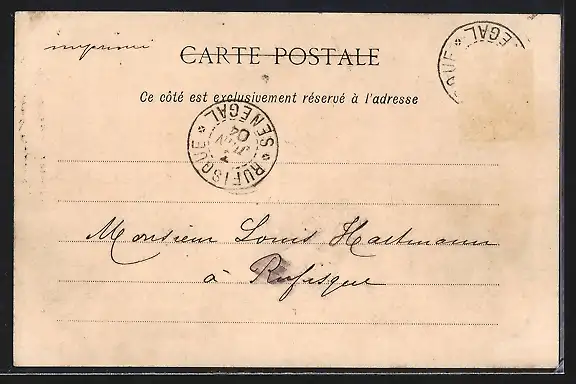 imprimé
CARTE POSTALE
Ce côté est exclusivement réservé à l'adresse
RUFISQUE * SENEGAL *
JUIN
04
QUE * EGAL
Monsieur Louis Hartmann
à Rufisque